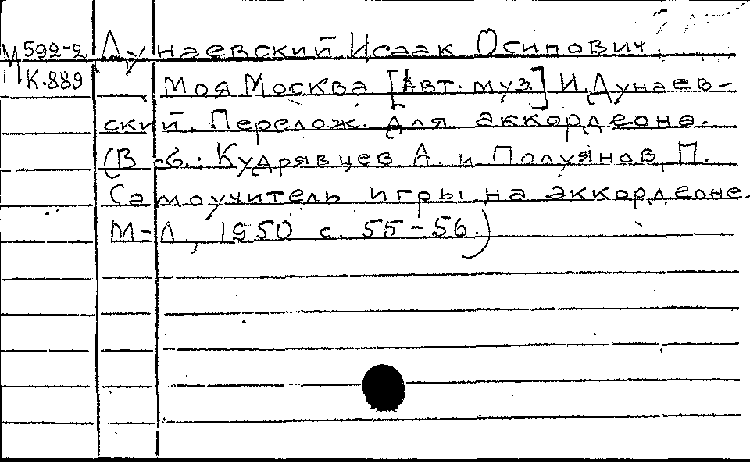 М 592-2 Дунаевский Исаак Осипович.
К.889 Моя Москва [Авт. муз.] И. Дунаев-
ский. Перелож. для аккордеона.
(В сб.: Кудрявцев А. и Полуянов П.
Самоучитель игры на аккордеоне.
М-Л, 1950 с. 55-56.)